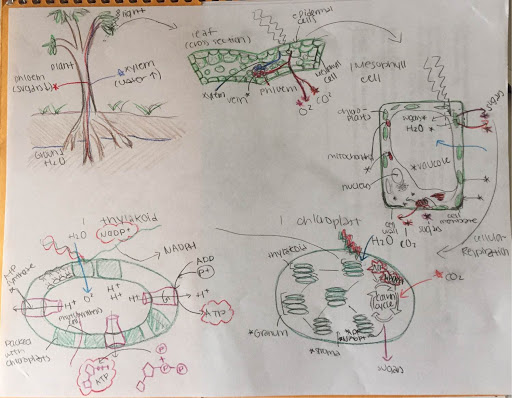 plant
phloem
(sugars↓)
xylem
(water↑)
Ground
H2O
leaf
(cross section)
epidermal
cells
xylem
vein
phloem
mesophyll
cell
O2 CO2
1 mesophyll
cell
chloro-
plasts
H2O
vacuole
mitochondria
nucleus
cell
wall
sugars
cell
membrane
cellular
Respiration
1 thylakoid
H2O
NADP+
NADPH
ADP
P+
ATP synthase
H+
O2
H+
H+
H+
H+
ATP
Packed
with
chloroplasts
ATP
P
P
1 chloroplast
H2O CO2
thylakoid
CO2
calvin
cycle
*Granum
*stroma
sugars